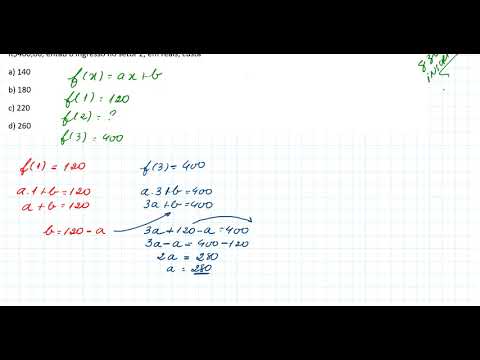 R$400,00, então o ingresso no setor 2, em reais, custa
a) 140
b) 180
c) 220
d) 260
f(x) = ax + b
f(1) = 120
f(2) = ?
f(3) = 400
f(1) = 120
a.1 + b = 120
a + b = 120
b = 120 - a
f(3) = 400
a.3 + b = 400
3a + b = 400
3a + 120 - a = 400
3a - a = 400 - 120
2a = 280
a = 280